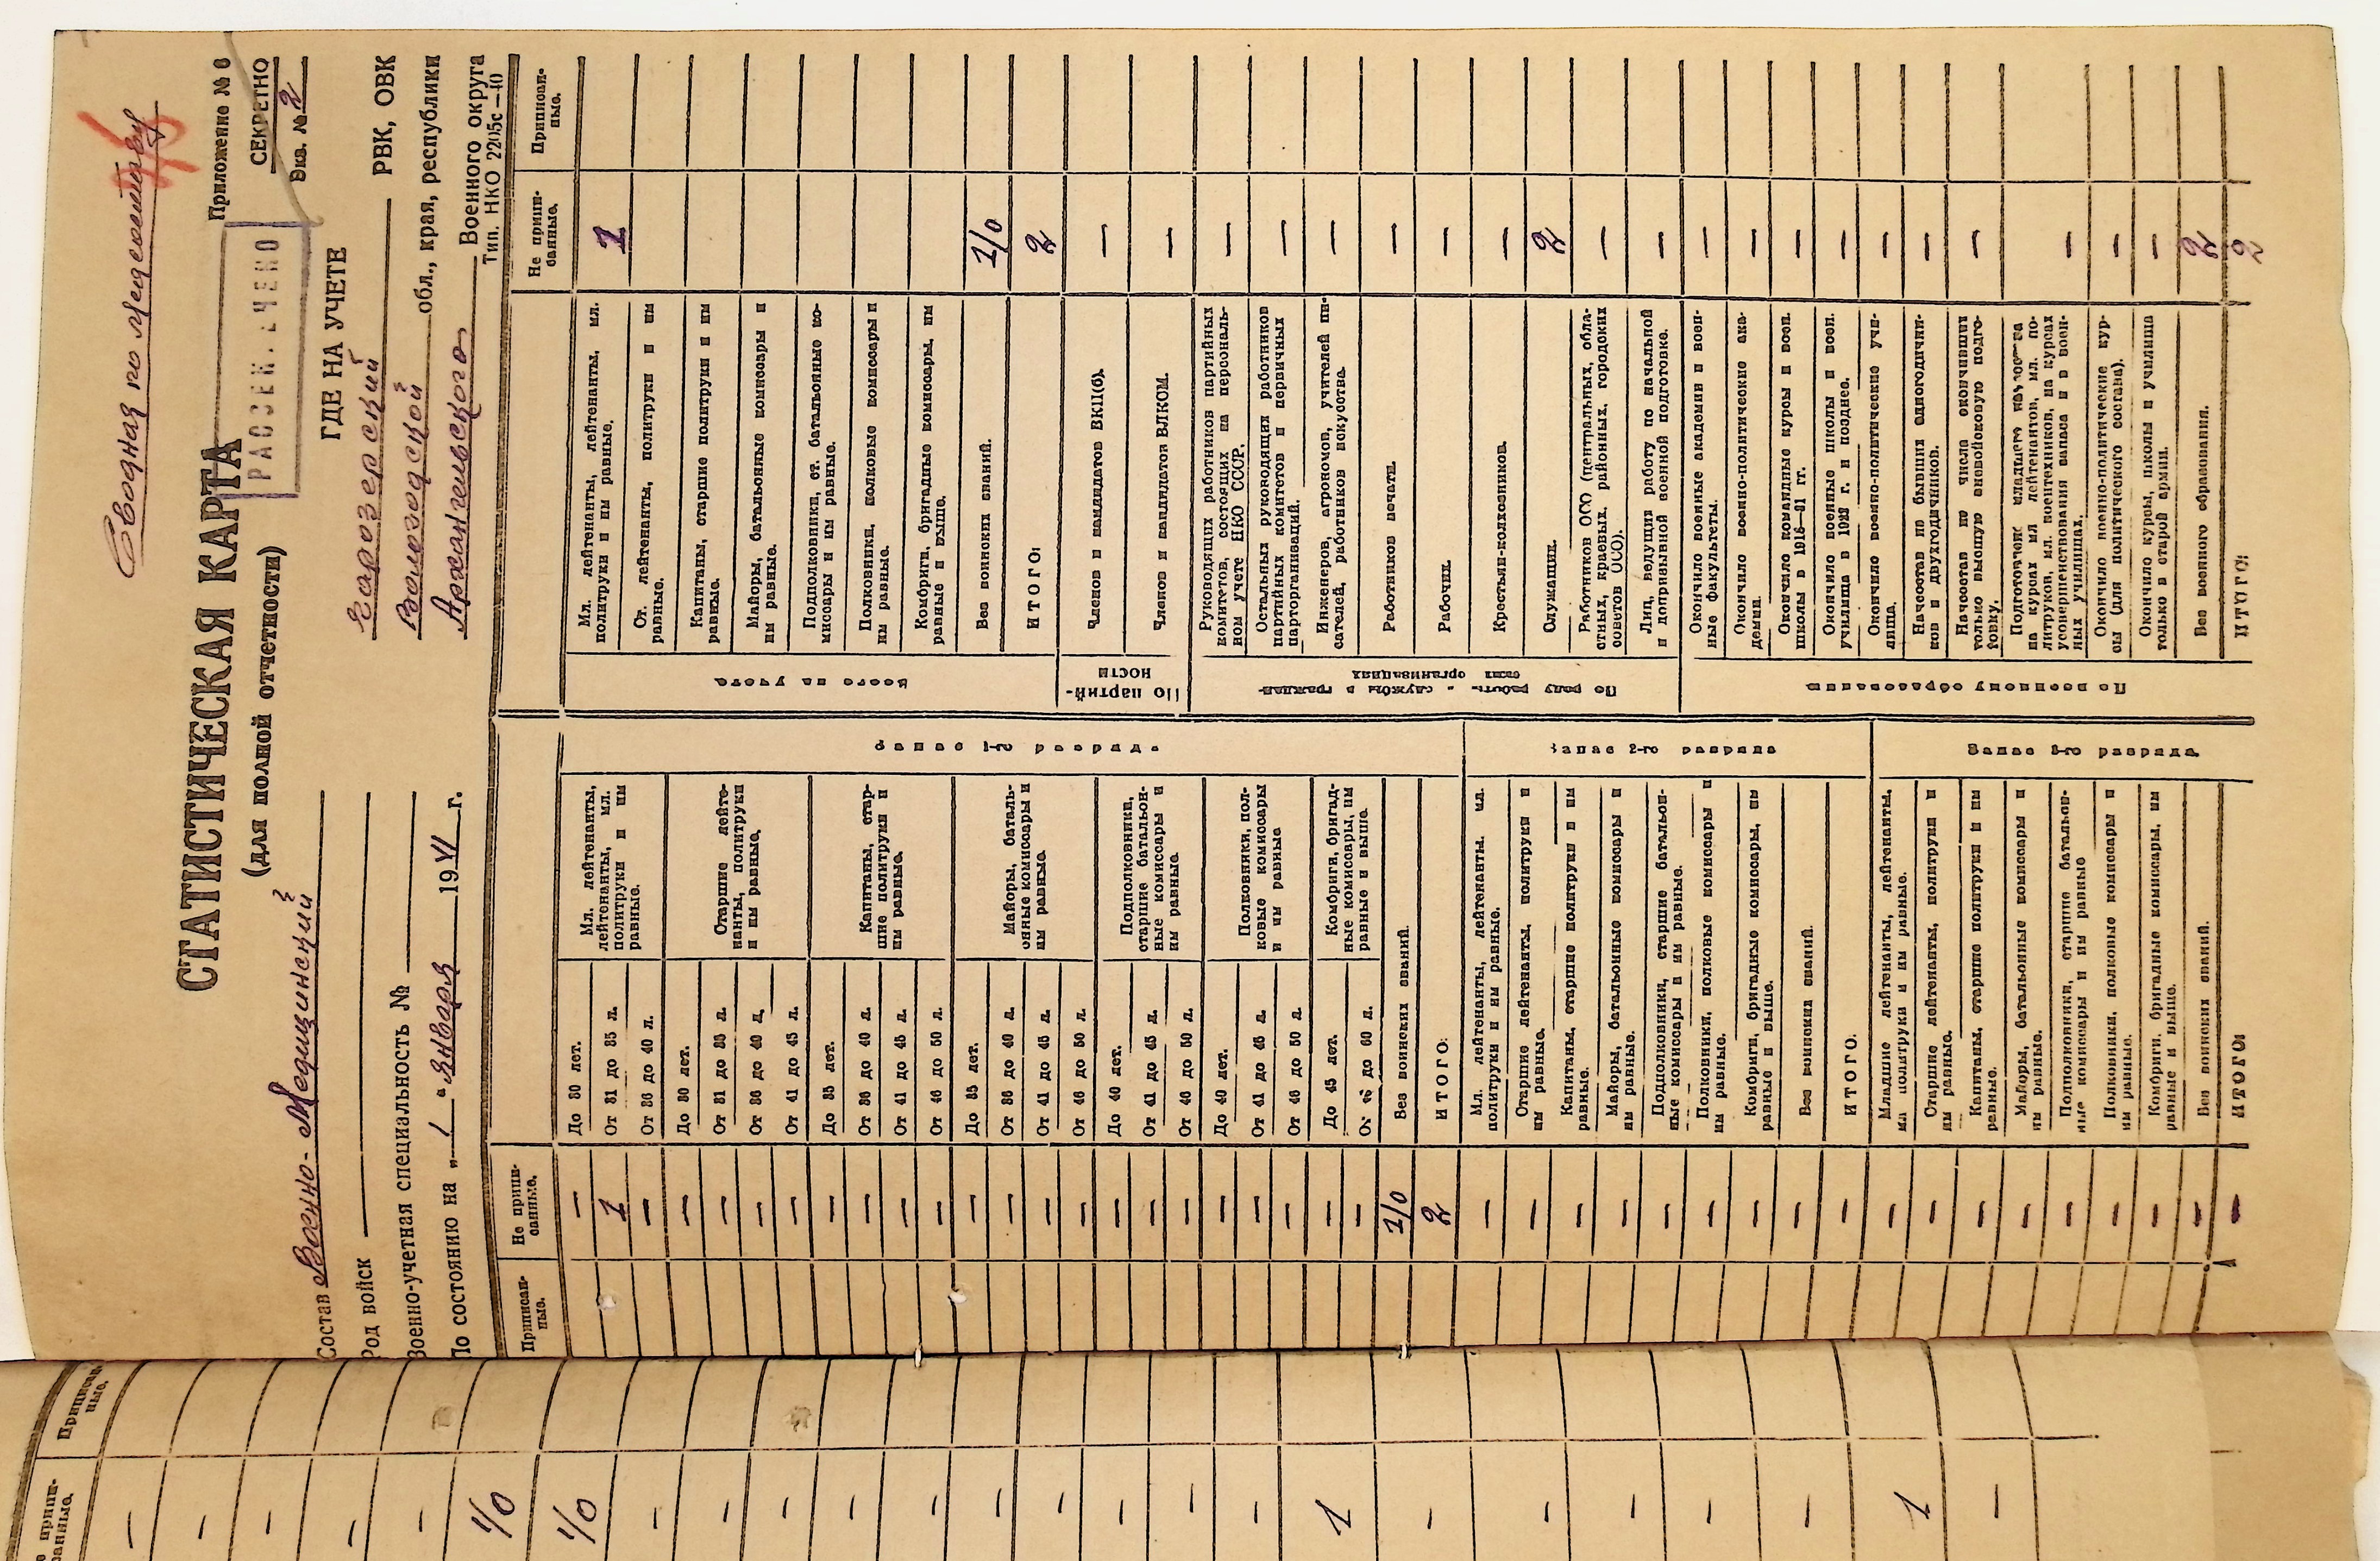 Сводная по медсоставу
Приложение № 6
СЕКРЕТНО
Экз. № 2
РАССЕКРЕЧЕНО
СТАТИСТИЧЕСКАЯ КАРТА
(для полной отчетности)
Состав Военно-Медицинский
Род войск
Военно-учетная специальность №
По состоянию на „1" Января 1941 г.
ГДЕ НА УЧЕТЕ
Чарозерский РВК, ОВК
Вологодской обл., края, республики
Архангельского Военного округа
Тип. НКО 2205с—40
Приписанные.
Не приписанные.
Запас 1-го разряда
До 30 лет. —
От 31 до 35 л. 1
От 36 до 40 л. —
Мл. лейтенанты,
лейтенанты, мл.
политруки и им
равные.
До 30 лет. —
От 31 до 35 л. —
От 36 до 40 л. —
От 41 до 45 л. —
Старшие лейте-
нанты, политруки
и им равные.
До 35 лет. —
От 36 до 40 л. —
От 41 до 45 л. —
От 46 до 50 л. —
Капитаны, стар-
шие политруки и
им равные.
До 35 лет. —
От 36 до 40 л. —
От 41 до 45 л. —
От 46 до 50 л. —
Майоры, баталь-
онные комиссары и
им равные.
До 40 лет. —
От 41 до 45 л. —
От 46 до 50 л. —
Подполковники,
старшие батальон-
ные комиссары и
им равные.
До 40 лет. —
От 41 до 45 л. —
От 46 до 50 л. —
Полковники, пол-
ковые комиссары
и им равные
До 45 лет. —
От 46 до 60 л. —
Комбриги, бригад-
ные комиссары, им
равные и выше.
Без воинских званий. 1/0
ИТОГО: 2
Запас 2-го разряда
Мл. лейтенанты, лейтенанты, мл.
политруки и им равные. —
Старшие лейтенанты, политруки и
им равные. —
Капитаны, старшие политруки и им
равные. —
Майоры, батальонные комиссары и
им равные. —
Подполковники, старшие батальон-
ные комиссары и им равные. —
Полковники, полковые комиссары и
им равные. —
Комбриги, бригадные комиссары, им
равные и выше. —
Без воинских званий. —
ИТОГО: —
Запас 3-го разряда
Младшие лейтенанты, лейтенанты,
мл. политруки и им равные. —
Старшие лейтенанты, политруки и
им равные. —
Капитаны, старшие политруки и им
равные. —
Майоры, батальонные комиссары и
им равные. —
Подполковники, старшие батальон-
ные комиссары и им равные —
Полковники, полковые комиссары и
им равные. —
Комбриги, бригадные комиссары, им
равные и выше. —
Без воинских званий. —
ИТОГО: —
Не припи-
санные.
Приписан-
ные.
Всего на учете
Мл. лейтенанты, лейтенанты, мл.
политруки и им равные. 1
Ст. лейтенанты, политруки и им
равные.
Капитаны, старшие политруки и им
равные.
Майоры, батальонные комиссары и
им равные.
Подполковники, ст. батальонные ко-
миссары и им равные.
Полковники, полковые комиссары и
им равные.
Комбриги, бригадные комиссары, им
равные и выше.
Без воинских званий. 1/0
ИТОГО: 2
По партий-
ности
Членов и кандидатов ВКП(б). —
Членов и кандидатов ВЛКСМ. —
По роду работы и службы в граждан-
ских организациях
Руководящих работников партийных
комитетов, состоящих на персональ-
ном учете НКО СССР. —
Остальных руководящих работников
партийных комитетов и первичных
парторганизаций. —
Инженеров, агрономов, учителей пи-
сателей, работников искусства. —
Работников печати. —
Рабочих. —
Крестьян-колхозников. —
Служащих. 2
Работников ОСО (центральных, обла-
стных, краевых, районных, городских
советов ОСО). —
Лиц, ведущих работу по начальной
и допризывной военной подготовке. —
По военному образованию
Окончило военные академии и воен-
ные факультеты. —
Окончило военно-политические ака-
демии. —
Окончило командные курсы и воен.
школы в 1918—21 гг. —
Окончило военные школы и воен.
училища в 1922 г. и позднее. —
Окончило военно-политические учи-
лища. —
Начсостав из бывших одногодични-
ков и двухгодичников. —
Начсостав из числа окончивших
только высшую вневойсковую подго-
товку. —
Подготовлено младшего начсостава
на курсах мл. лейтенантов, мл. по-
литруков, мл. воентехников, на курсах
усовершенствования запаса и в воен-
ных училищах. —
Окончило военно-политические кур-
сы (для политического состава). —
Окончило курсы, школы и училища
только в старой армии. —
Без военного образования. 2
ИТОГО: 2
Приписан-
ные.
Не припи-
санные.
— — — — — 1/0 1/0 — — — — — — — — — — 1 — — — — 1 —